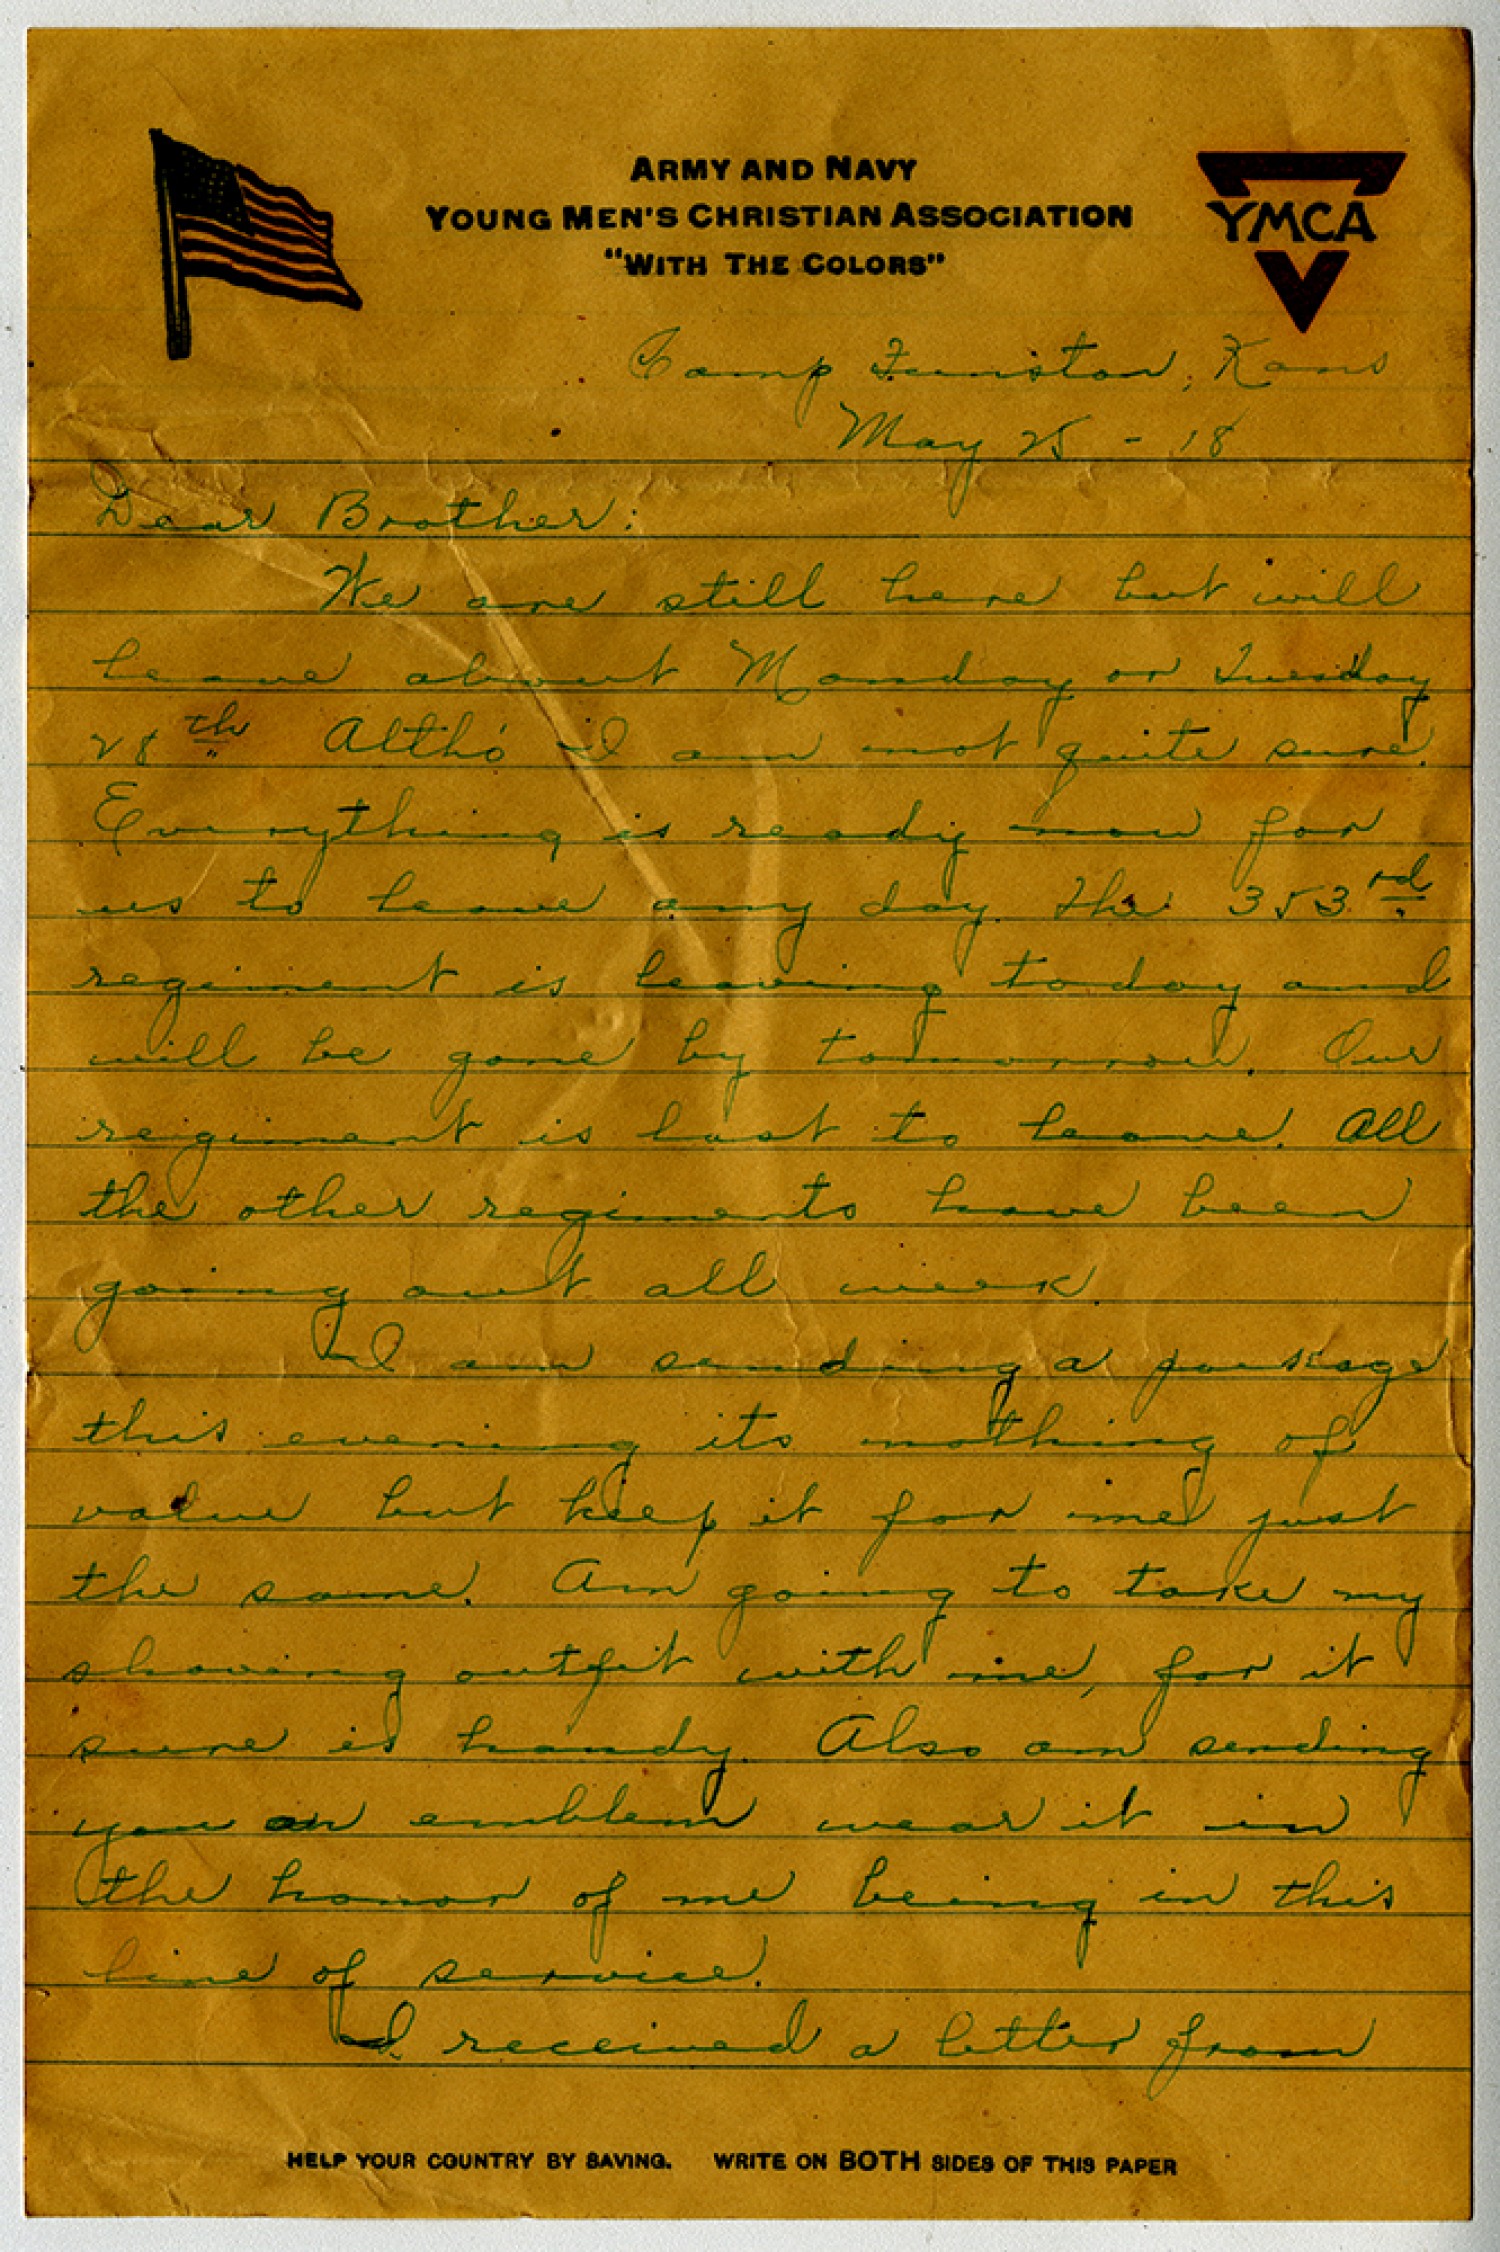 ARMY AND NAVY
YOUNG MEN'S CHRISTIAN ASSOCIATION
"WITH THE COLORS"
YMCA
Camp Funston, Kans
May 25 - 18
Dear Brother:
We are still here but will
leave about Monday or Tuesday
28th Altho' I am not quite sure.
Everything is ready now for
us to leave any day. The 353rd
regiment is leaving today and
will be gone by tomorrow. Our
regiment is last to leave. All
the other regiments have been
going out all week.
I am sending a package
this evening its nothing of
value but keep it for me just
the same. Am going to take my
shaving outfit with me, for it
sure is handy. Also am sending
you an emblem wear it in
the honor of me being in this
line of service.
I received a letter from
HELP YOUR COUNTRY BY SAVING. WRITE ON BOTH SIDES OF THIS PAPER